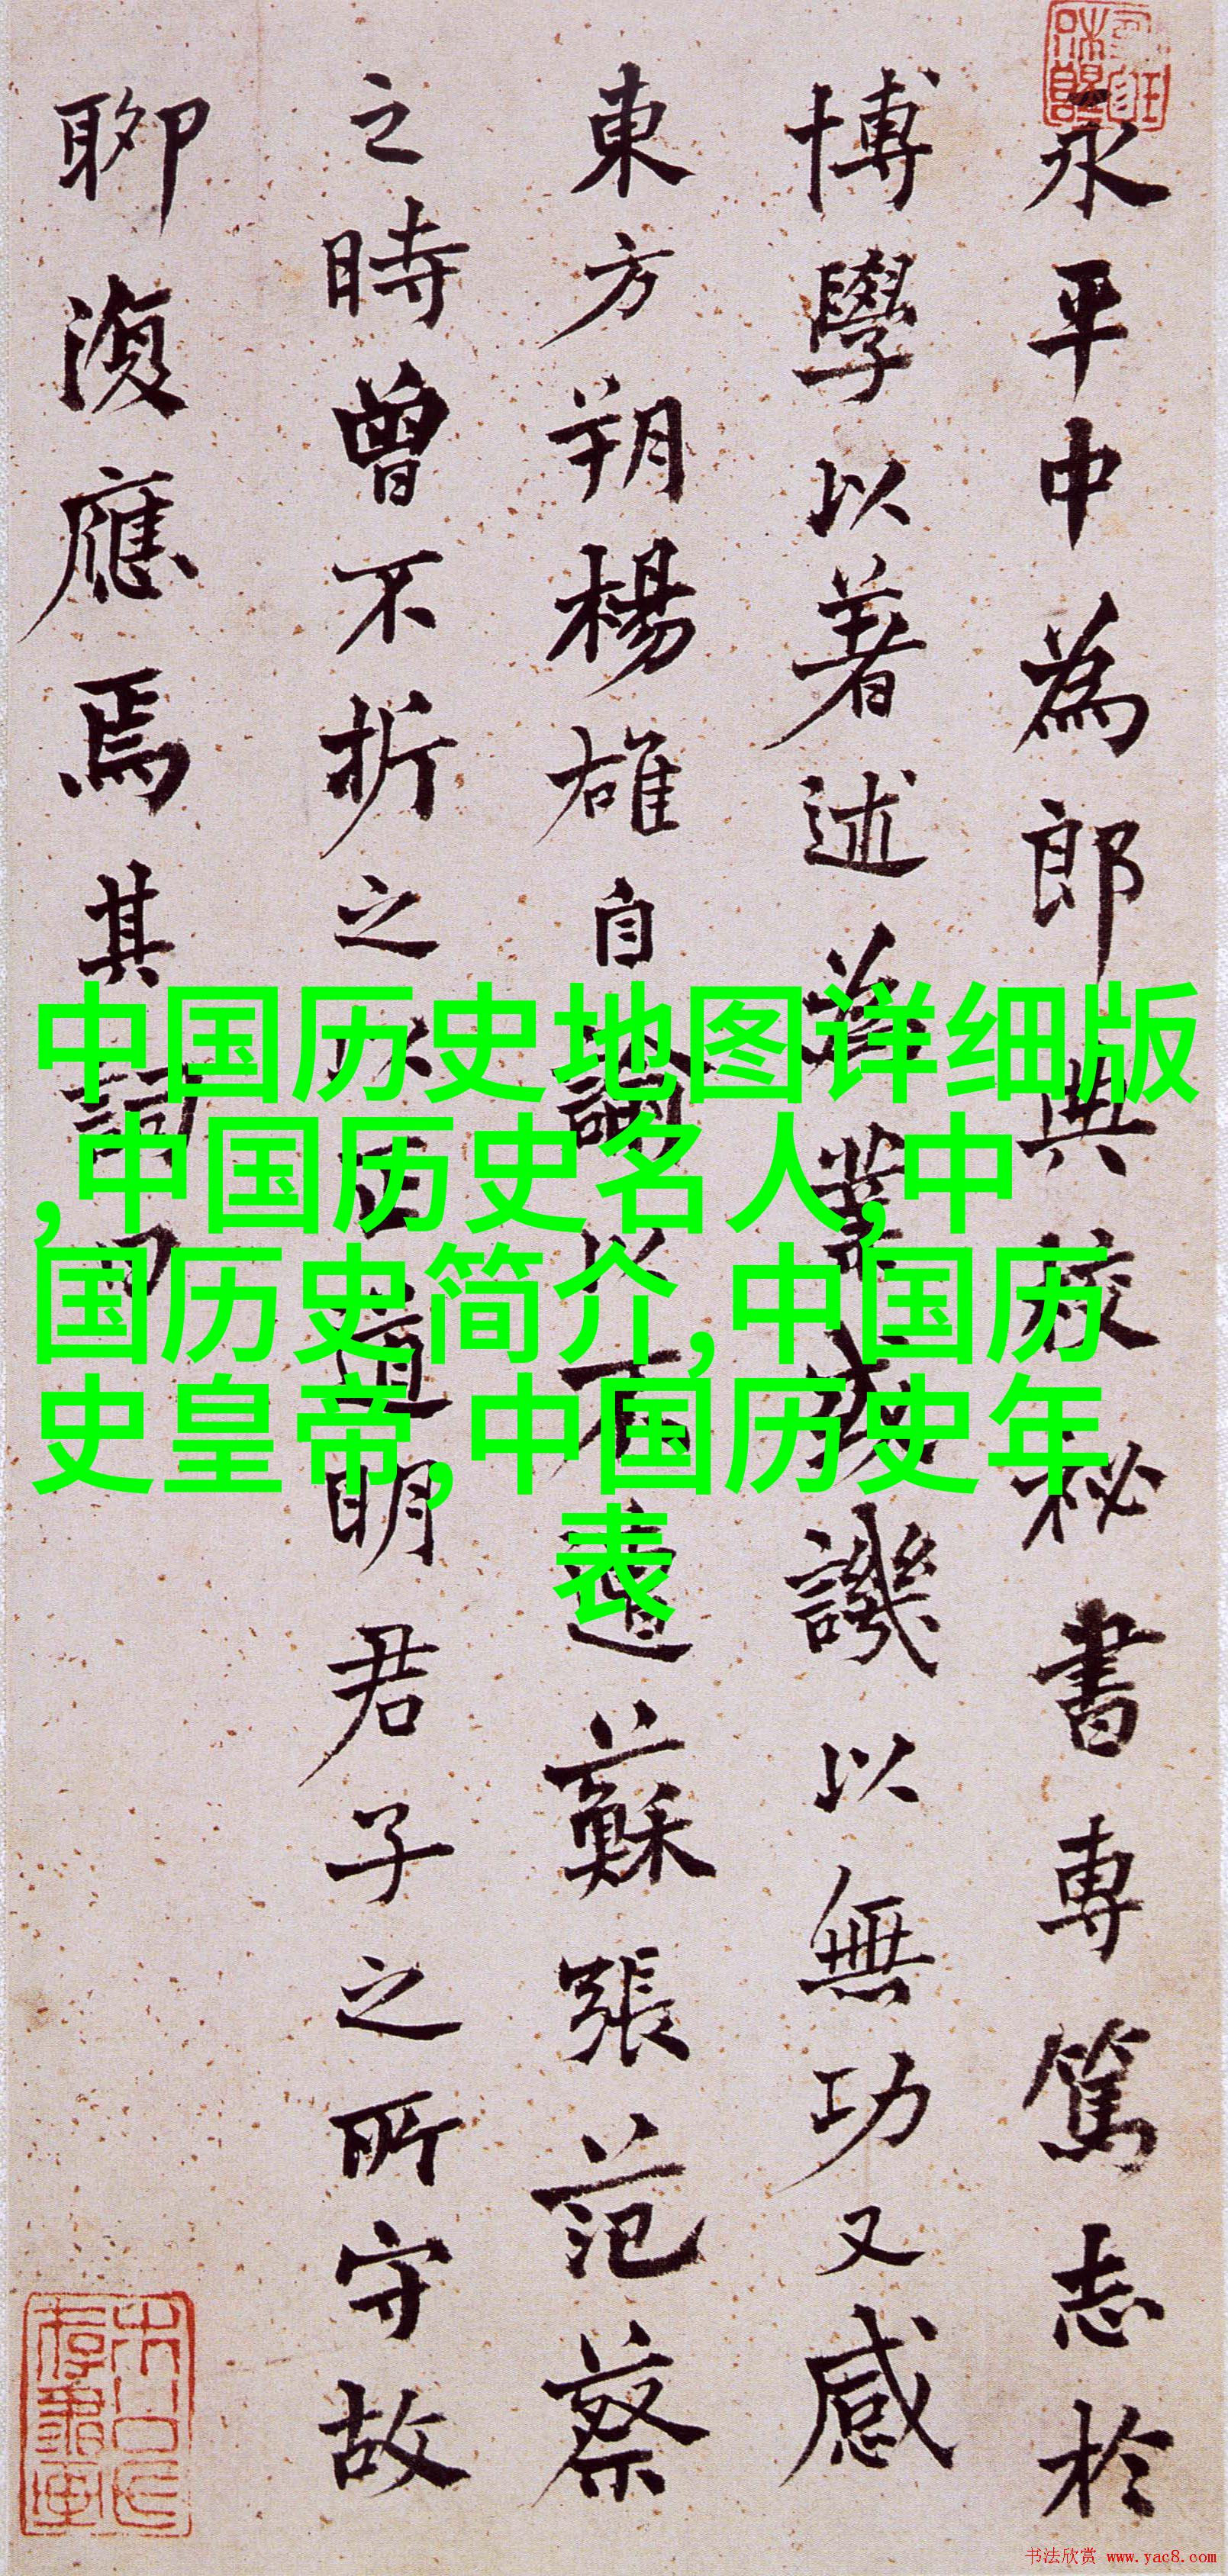 永平中為郎典校秘書專篤志於
博學以著述為業或譏以無功又感
東方朔楊雄自諭以不遭蘇張范蔡
之時曾不折之以正道明君子之所守故
聊復應焉其詞曰
中国历史地图详细版
,中国历史名人,中
国历史简介,中国历
史皇帝,中国历史年
表
书法欣赏 www.yac8.com